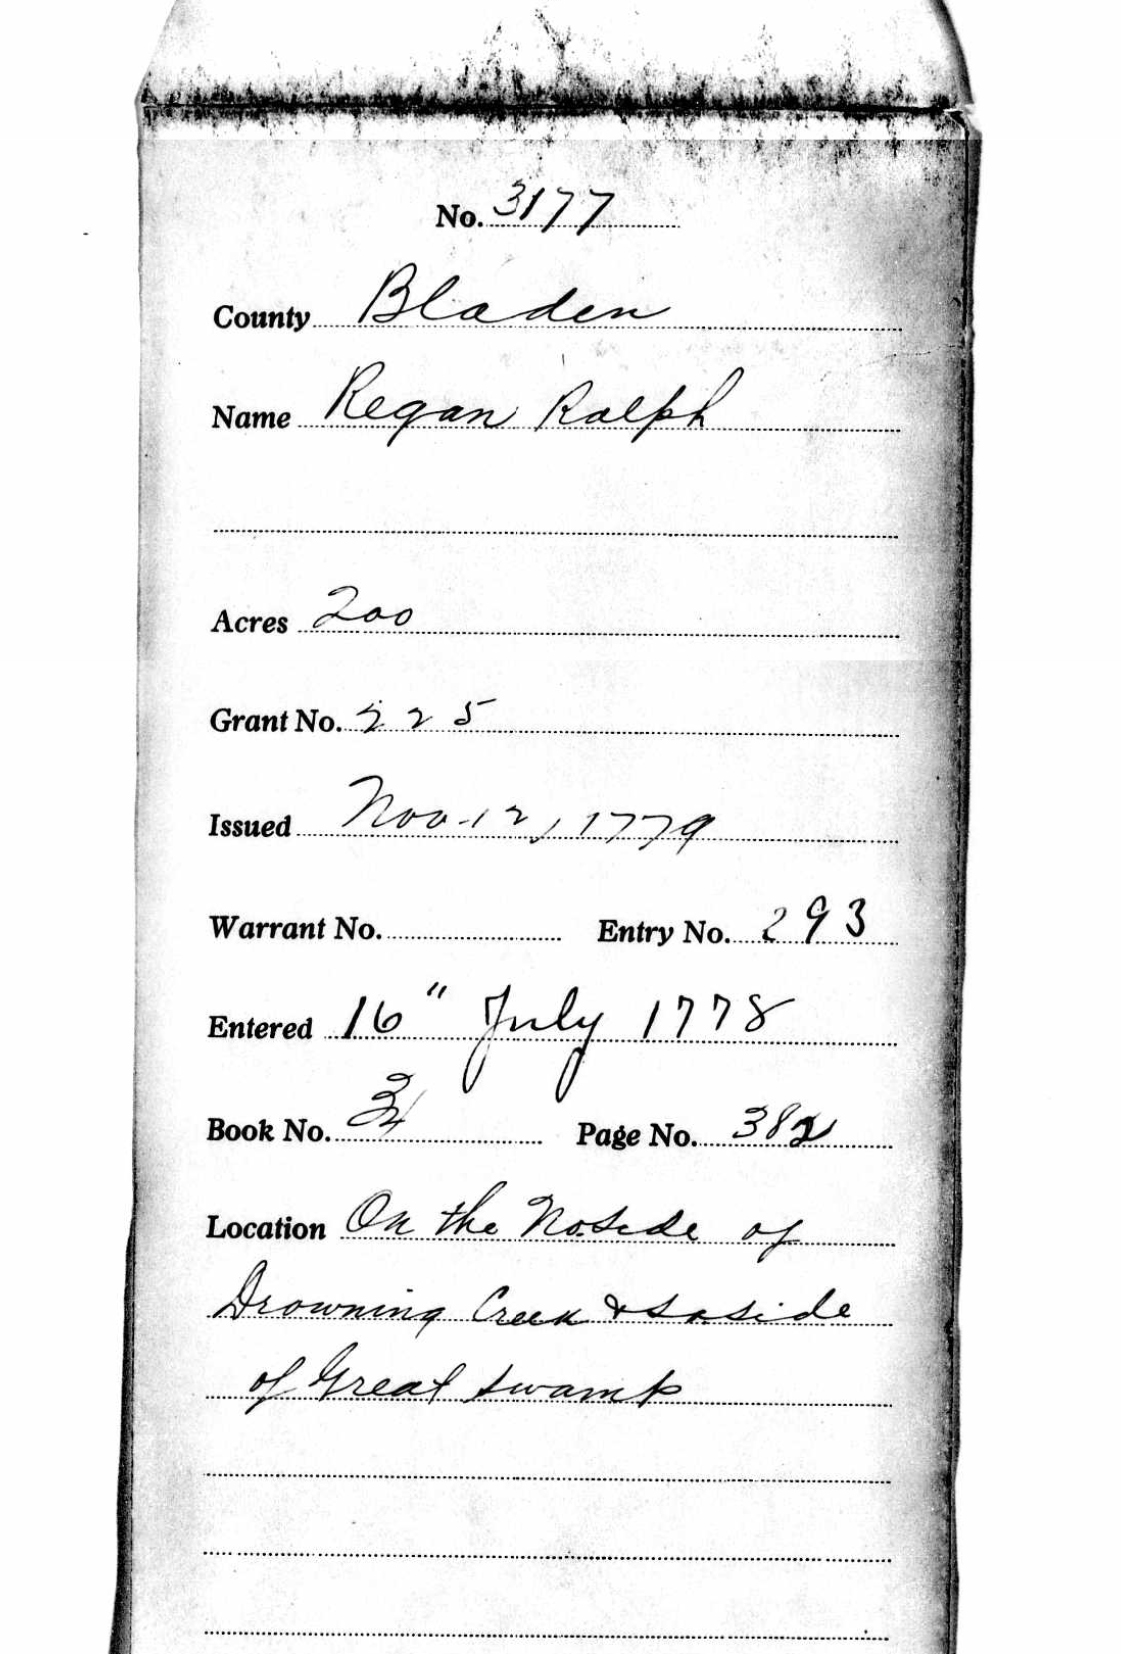 No. 3177
County Bladen
Name Regan Ralph
Acres 200
Grant No. 225
Issued Nov. 12, 1779
Warrant No. Entry No. 293
Entered 16" July 1778
Book No. 34 Page No. 382
Location On the No. side of
Drowning Creek & So. side
of Great Swamp